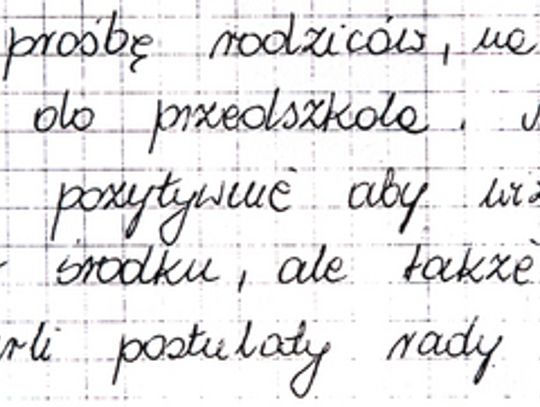 prośbę rodziców, na
do przedszkola.
pozytywnie aby
środku, ale także
postulaty rady